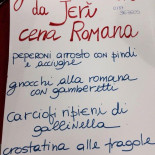 da Jerì
cena Romana
peperoni arrosto con pindi
e acciughe
gnocchi alla romana
con gamberetti
carciofi ripieni di
gallinella
crostatina alle fragole